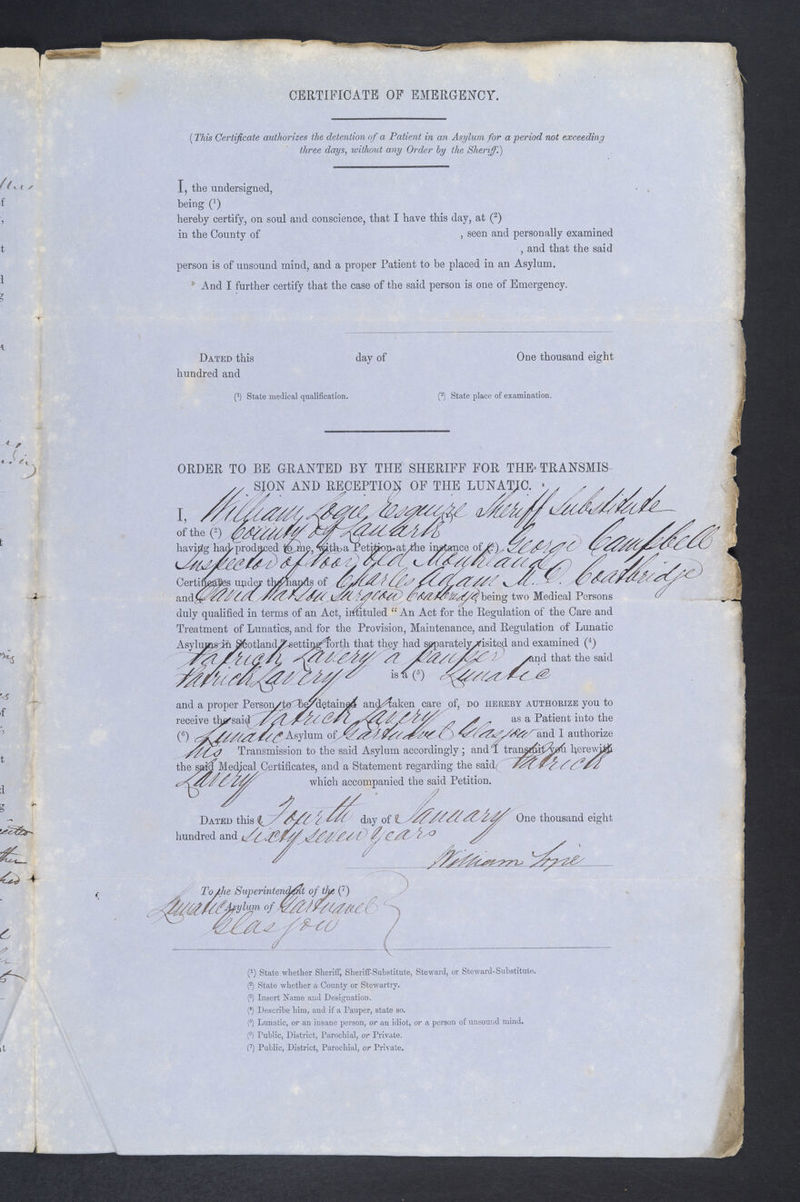 CERTIFICATE OF EMERGENCY.
(This Certificate authorizes the detention of a Patient in an Asylum for a period not exceeding
three days, without any Order by the Sheriff.)
I, the undersigned,
being (¹)
hereby certify, on soul and conscience, that I have this day, at (²)
in the County of , seen and personally examined
, and that the said
person is of unsound mind, and a proper Patient to be placed in an Asylum.
* And I further certify that the case of the said person is one of Emergency.
DATED this day of One thousand eight
hundred and
(¹) State medical qualification. (²) State place of examination.
ORDER TO BE GRANTED BY THE SHERIFF FOR THE TRANSMIS-
SION AND RECEPTION OF THE LUNATIC.
I, William Logie Esquire Sheriff Substitute
of the (²) County of Lanark
having had produced to me, with a Petition at the instance of (³) George Campbell
Inspector of Poor Old Monkland
Certificates under the hands of Charles Adam M.D. Coatbridge
and David Watson Surgeon Coatbridge being two Medical Persons
duly qualified in terms of an Act, intituled "An Act for the Regulation of the Care and
Treatment of Lunatics, and for the Provision, Maintenance, and Regulation of Lunatic
Asylums in Scotland," setting forth that they had separately visited and examined (⁴)
Patrick Lavery a Pauper and that the said
Patrick Lavery is a (⁵) Lunatic
and a proper Person to be detained and taken care of, DO HEREBY AUTHORIZE you to
receive the said Patrick Lavery as a Patient into the
(⁶) Lunatic Asylum of Gartnavel Glasgow and I authorize
his Transmission to the said Asylum accordingly; and I transmit you herewith
the said Medical Certificates, and a Statement regarding the said Patrick
Lavery which accompanied the said Petition.
DATED this Fourth day of January One thousand eight
hundred and Sixty seven years
William Logie
To the Superintendent of the (⁷)
Lunatic Asylum of Gartnavel
Glasgow
(¹) State whether Sheriff, Sheriff-Substitute, Steward, or Steward-Substitute.
(²) State whether a County or Stewartry.
(³) Insert Name and Designation.
(⁴) Describe him, and if a Pauper, state so.
(⁵) Lunatic, or an insane person, or an idiot, or a person of unsound mind.
(⁶) Public, District, Parochial, or Private.
(⁷) Public, District, Parochial, or Private.